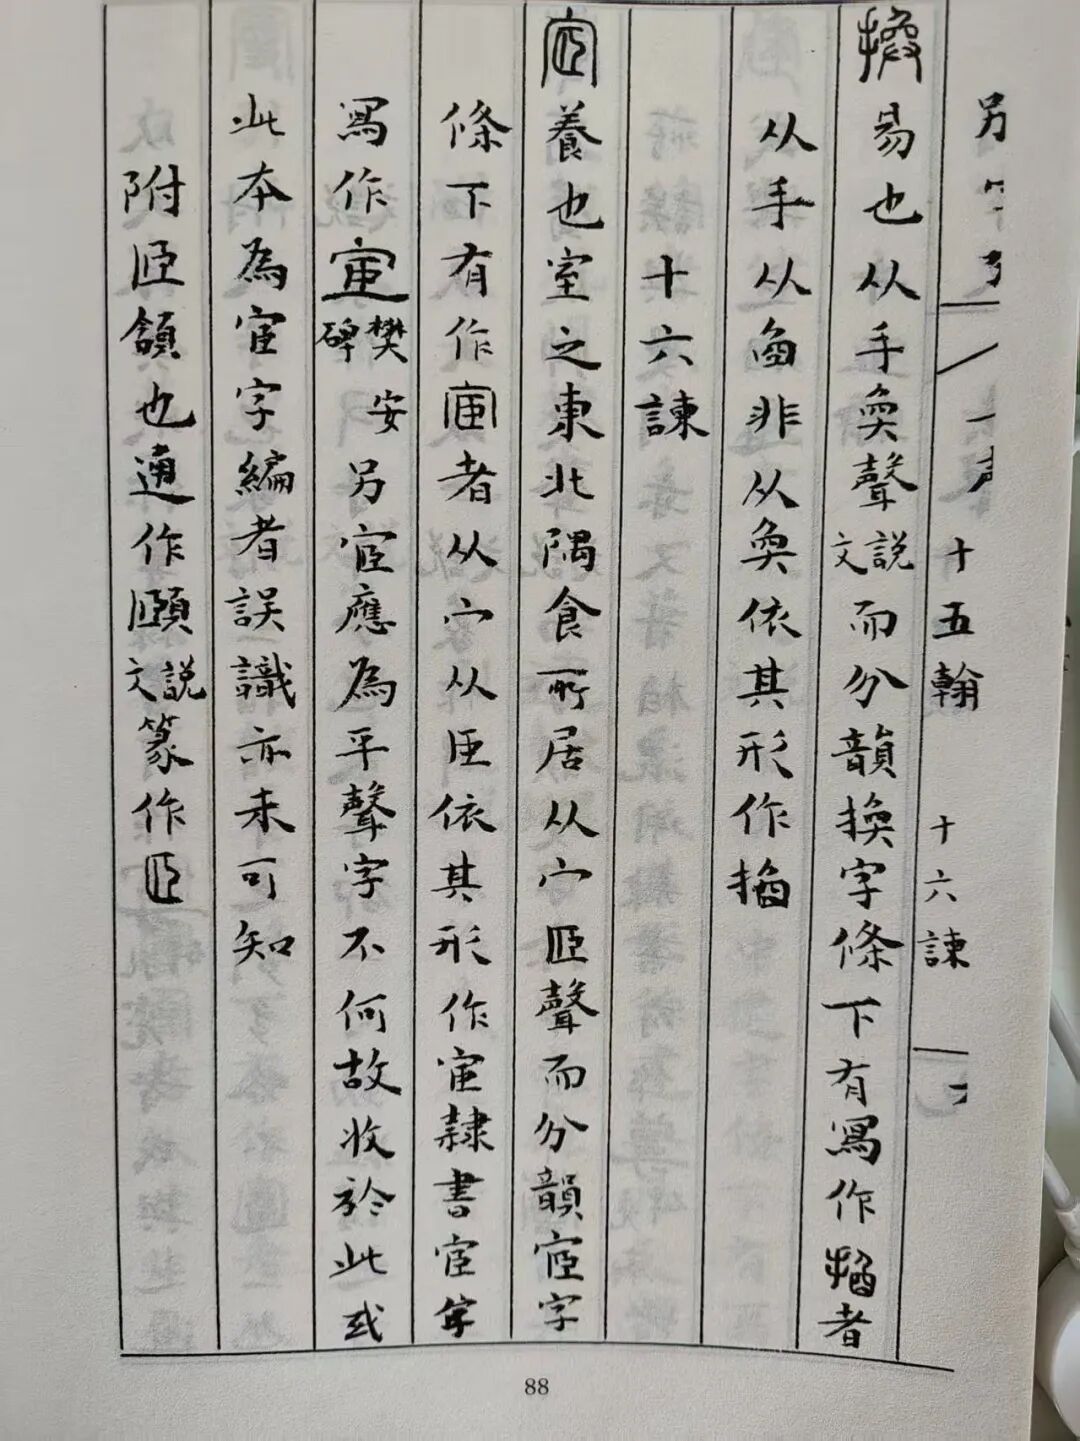 十五翰 十六諫
換易也从手奐聲說文而分韻換字條下有寫作𢰇者
从手从𠧪非从奐依其形作
十六諫
宧養也室之東北隅食所居从宀𦣞聲而分韻宧字
條下有作者从宀从𦣝依其形作隸書宧字
寫作樊安碑另宧應為平聲字不何故收於此或
此本為宦字編者誤識亦未可知
附𦣞頷也通作頤說文篆作𦣞
88